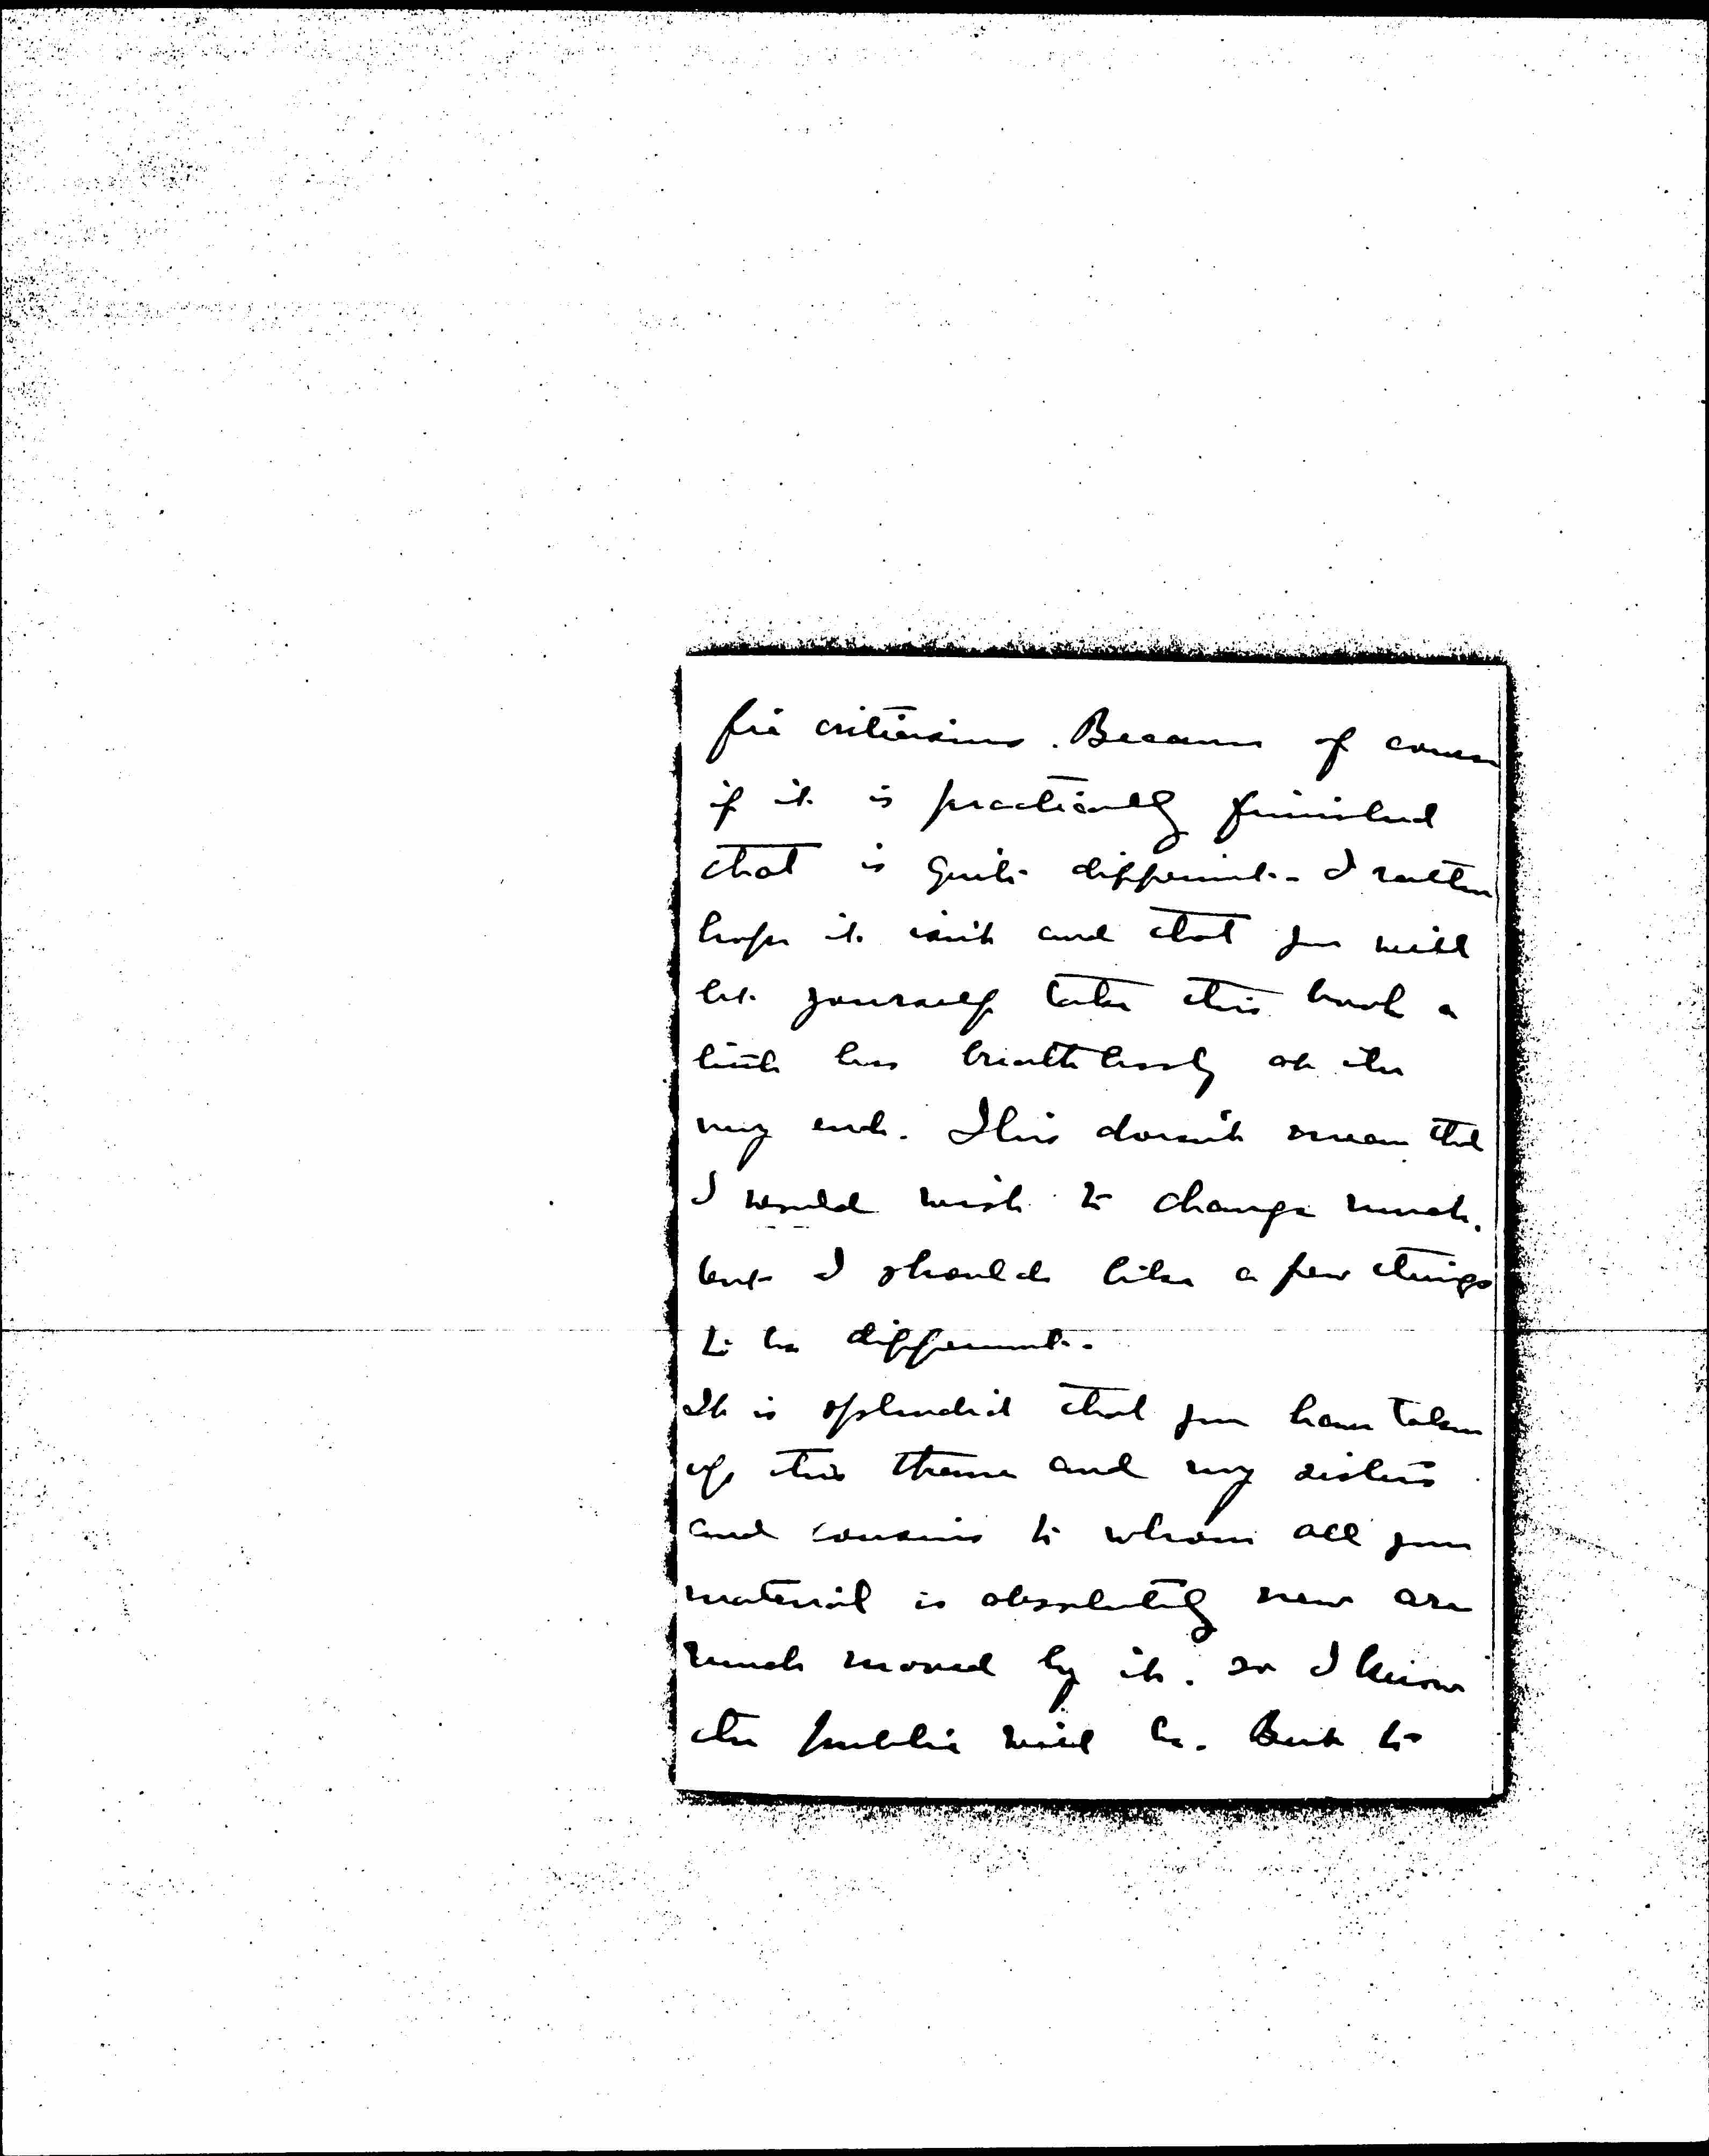 criticisms. Because of course
if it is practically finished
that is quite different. I rather
hope it isn't and that you will
let yourself take this book a
little less breathlessly at the
very end. This doesn't mean that
I would wish to change much,
but I should like a few things
to be different.
It is splendid that you have taken
up this theme and my sisters
and cousins to whom all your
material is absolutely new are
much moved by it. so I know
the public will be. But to